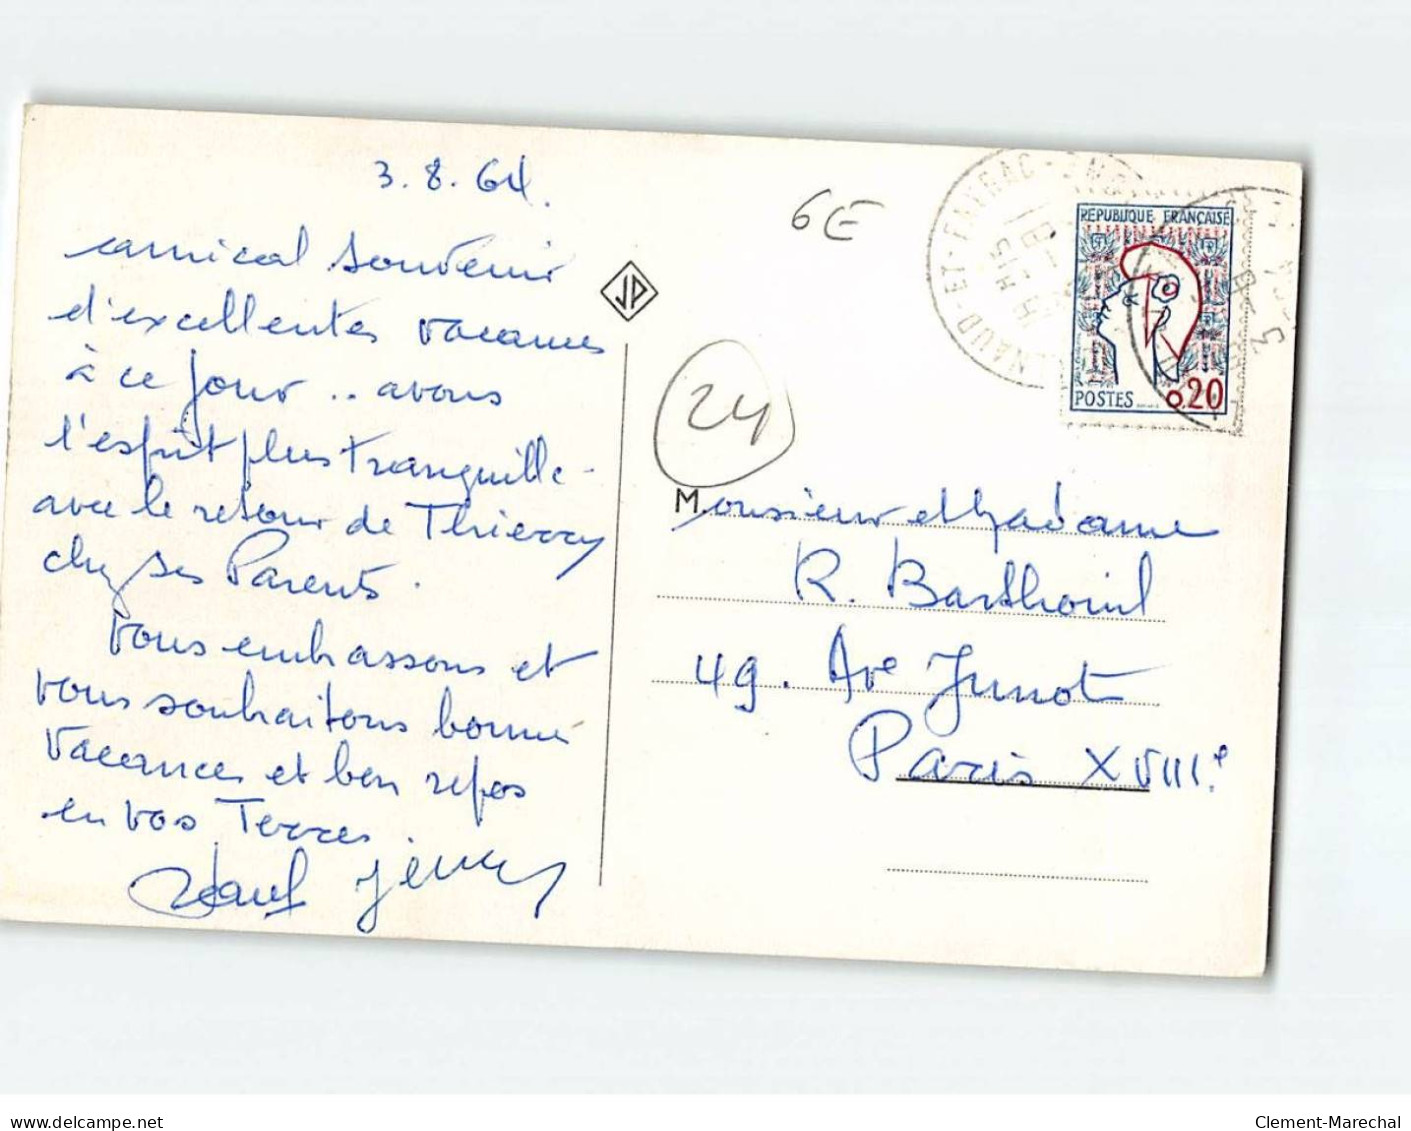 3.8.64.
amical souvenir
d'excellentes vacances
à ce jour .. avons
l'esprit plus tranquille -
avec le retour de Thierry
chez ses Parents.
Vous embrassons et
vous souhaitons bonnes
vacances et bon repos
en vos Terres.
JP
6E
24
RÉPUBLIQUE FRANÇAISE
POSTES 0,20
ET-FAYRAC
18H15
Monsieur et Madame
R.
49. Ave Junot
Paris XVIIIe.
www.delcampe.net
Clement-Marechal